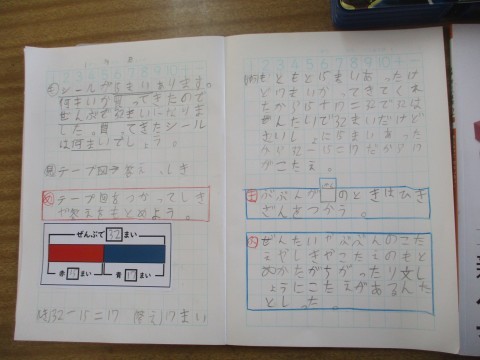 も シールが15まいあります。
何まいか買ってきたので
ぜんぶで32まいになりま
した。買ってきたシール
は何まいでしょう。
テープ図 答え しき
め テープ図をつかってしき
や答えをまとめよう。
ぜんぶで 32 まい
赤 15 まい 青 17 まい
32-15=17 答え 17まい
1 2 3 4 5 6 7 8 9 10
もともと15まいあったけ
ど17まいかってきてくれ
たから15+17=32で
ぜんたいで32まいだけど
さいしょに15まいあった
から32-15=17だから17
がこたえ。
ま ぶぶんが□のときはひき
ざんをつかう。
ふ ぜんたいやぶぶんのこた
えやしきやこたえのもと
めかたがちがったり文し
ょうにこたえがあるんだ
とし った。